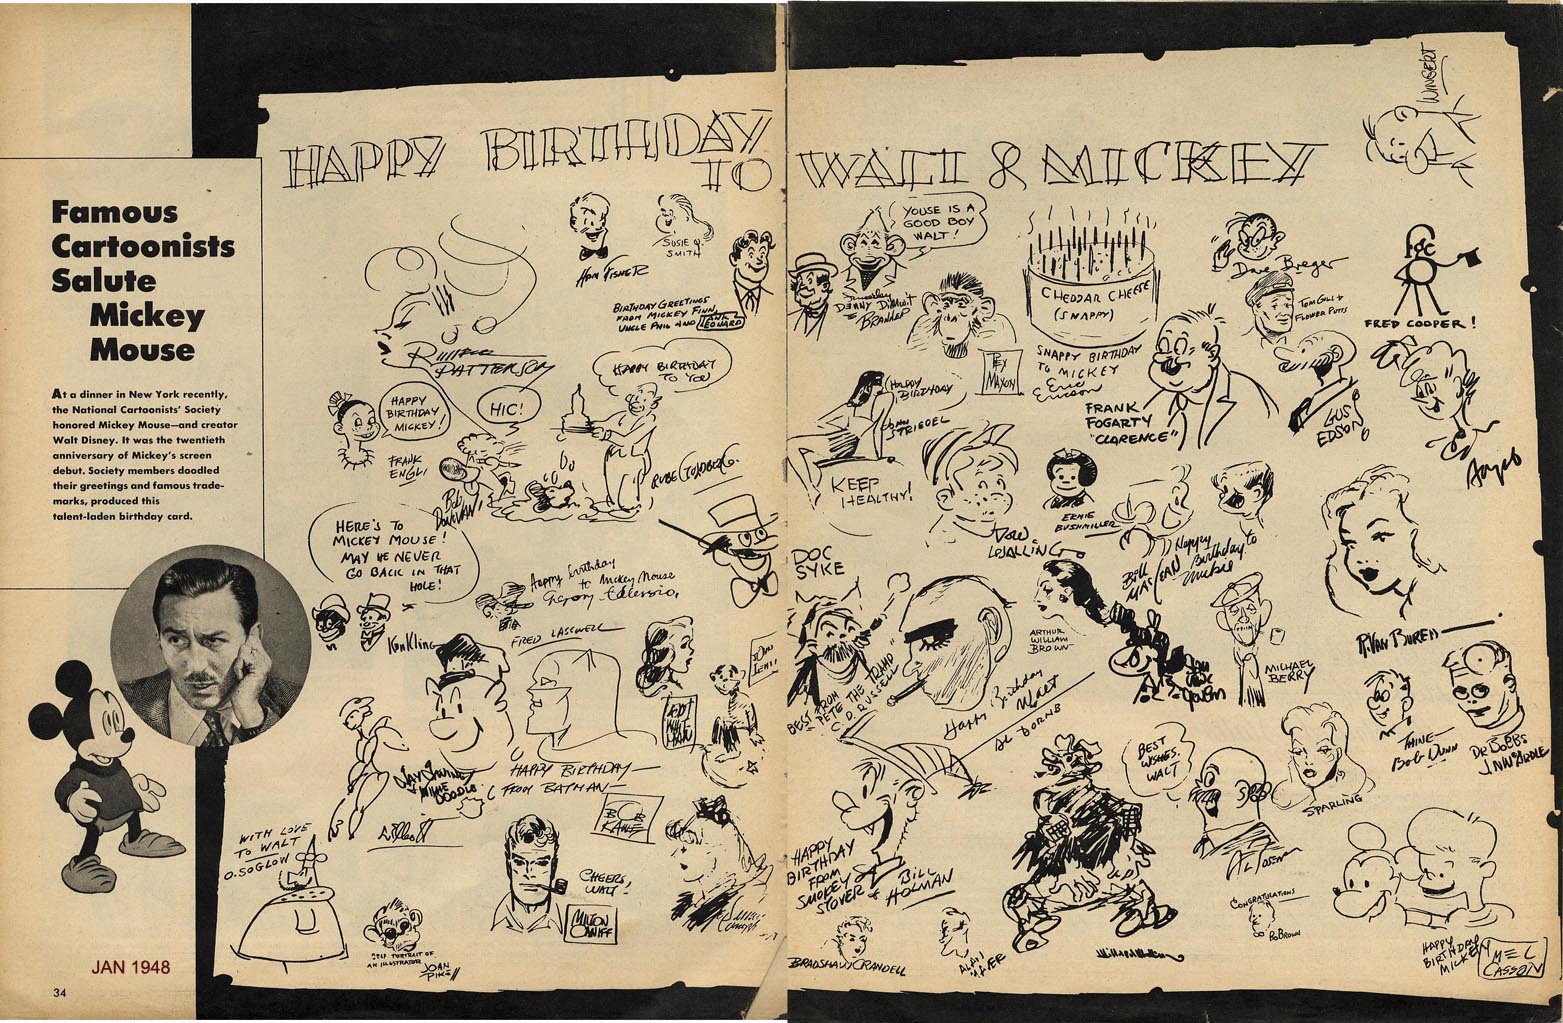 HAPPY BIRTHDAY TO WALT & MICKEY
Famous
Cartoonists
Salute
Mickey
Mouse
At a dinner in New York recently,
the National Cartoonists' Society
honored Mickey Mouse—and creator
Walt Disney. It was the twentieth
anniversary of Mickey's screen
debut. Society members doodled
their greetings and famous trade-
marks, produced this
talent-laden birthday card.
JAN 1948
34
HAM FISHER
SUSIE Q.
SMITH
BIRTHDAY GREETINGS
FROM MICKEY FINN,
UNCLE PHIL AND LANK
LEONARD
RUSSELL
PATTERSON
HAPPY
BIRTHDAY
MICKEY!
FRANK
ENGLI
HIC!
BOB
DONOVAN!
HAPPY BIRTHDAY
TO YOU
RUBE GOLDBERG
HERE'S TO
MICKEY MOUSE!
MAY HE NEVER
GO BACK IN THAT
HOLE!
KEN KLING
Happy birthday
to Mickey Mouse
Gregory d'Alessio
FRED LASSWELL
WILLIE
DOODLE
HAPPY BIRTHDAY—
FROM BATMAN—
BOB
KANE
WITH LOVE
TO WALT
O. SOGLOW
SELF PORTRAIT OF
AN ILLUSTRATOR
CHEERS!
WALT
MILTON
CANIFF
YOUSE IS A
GOOD BOY
WALT!
CHEDDAR CHEESE
(SNAPPY)
SNAPPY BIRTHDAY
TO MICKEY
Eric
Ericson
REY
MAXON
HAPPY
BIRTHDAY
STRIEBEL
KEEP
HEALTHY!
DOC
SYKE
FRANK
FOGARTY
"CLARENCE"
Dave Breger
TOM GILL +
FLOWER POTTS
FRED COOPER!
GUS
EDSON
WINGERT
ERNIE
BUSHMILLER
Happy
Birthday to
Mickie
ARTHUR
WILLIAM
BROWN
BEST FROM
PETE THE TRAMP
C.D. RUSSELL
Happy Birthday
Walt
AL DORNE
MICHAEL
BERRY
R. VAN BUREN
BOB DUNN
DR BOBBS
BEST
WISHES.
WALT
AL POSEN
SPARLING
HAPPY
BIRTHDAY
FROM
SMOKEY
STOVER &
BILL
HOLMAN
BRADSHAW CRANDELL
CONGRATULATIONS
BO BROWN
HAPPY
BIRTHDAY
MICKEY
MEL
CASSON